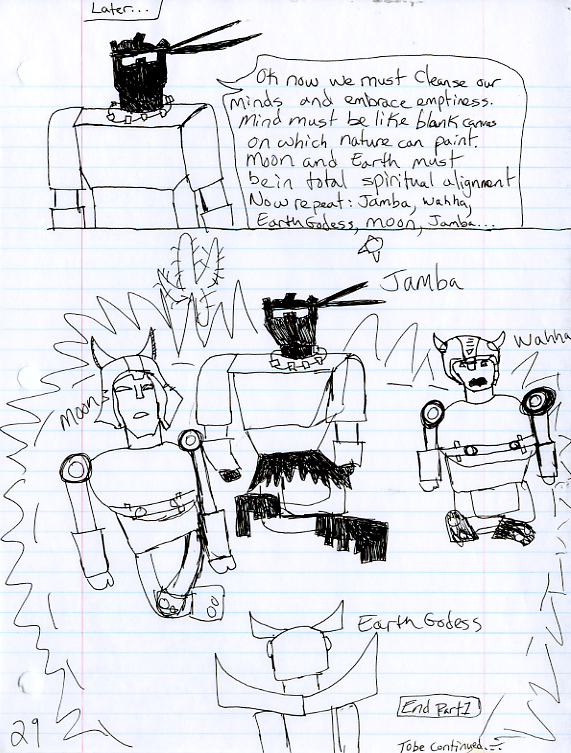 Later...
Ok now we must Cleanse our
minds and embrace emptiness.
Mind must be like blank canvas
on which nature can paint.
Moon and Earth must
be in total spiritual alignment
Now repeat: Jamba, Wahha,
Earth Godess, moon, Jamba...
Jamba
Wahha
Moon
Earth Godess
End Part 1
29
To be continued...